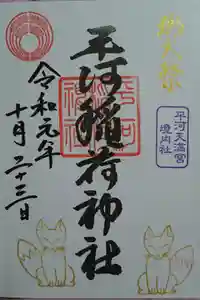 平河天満宮
境内社
平河稲荷神社
令和元年
十月二十三日